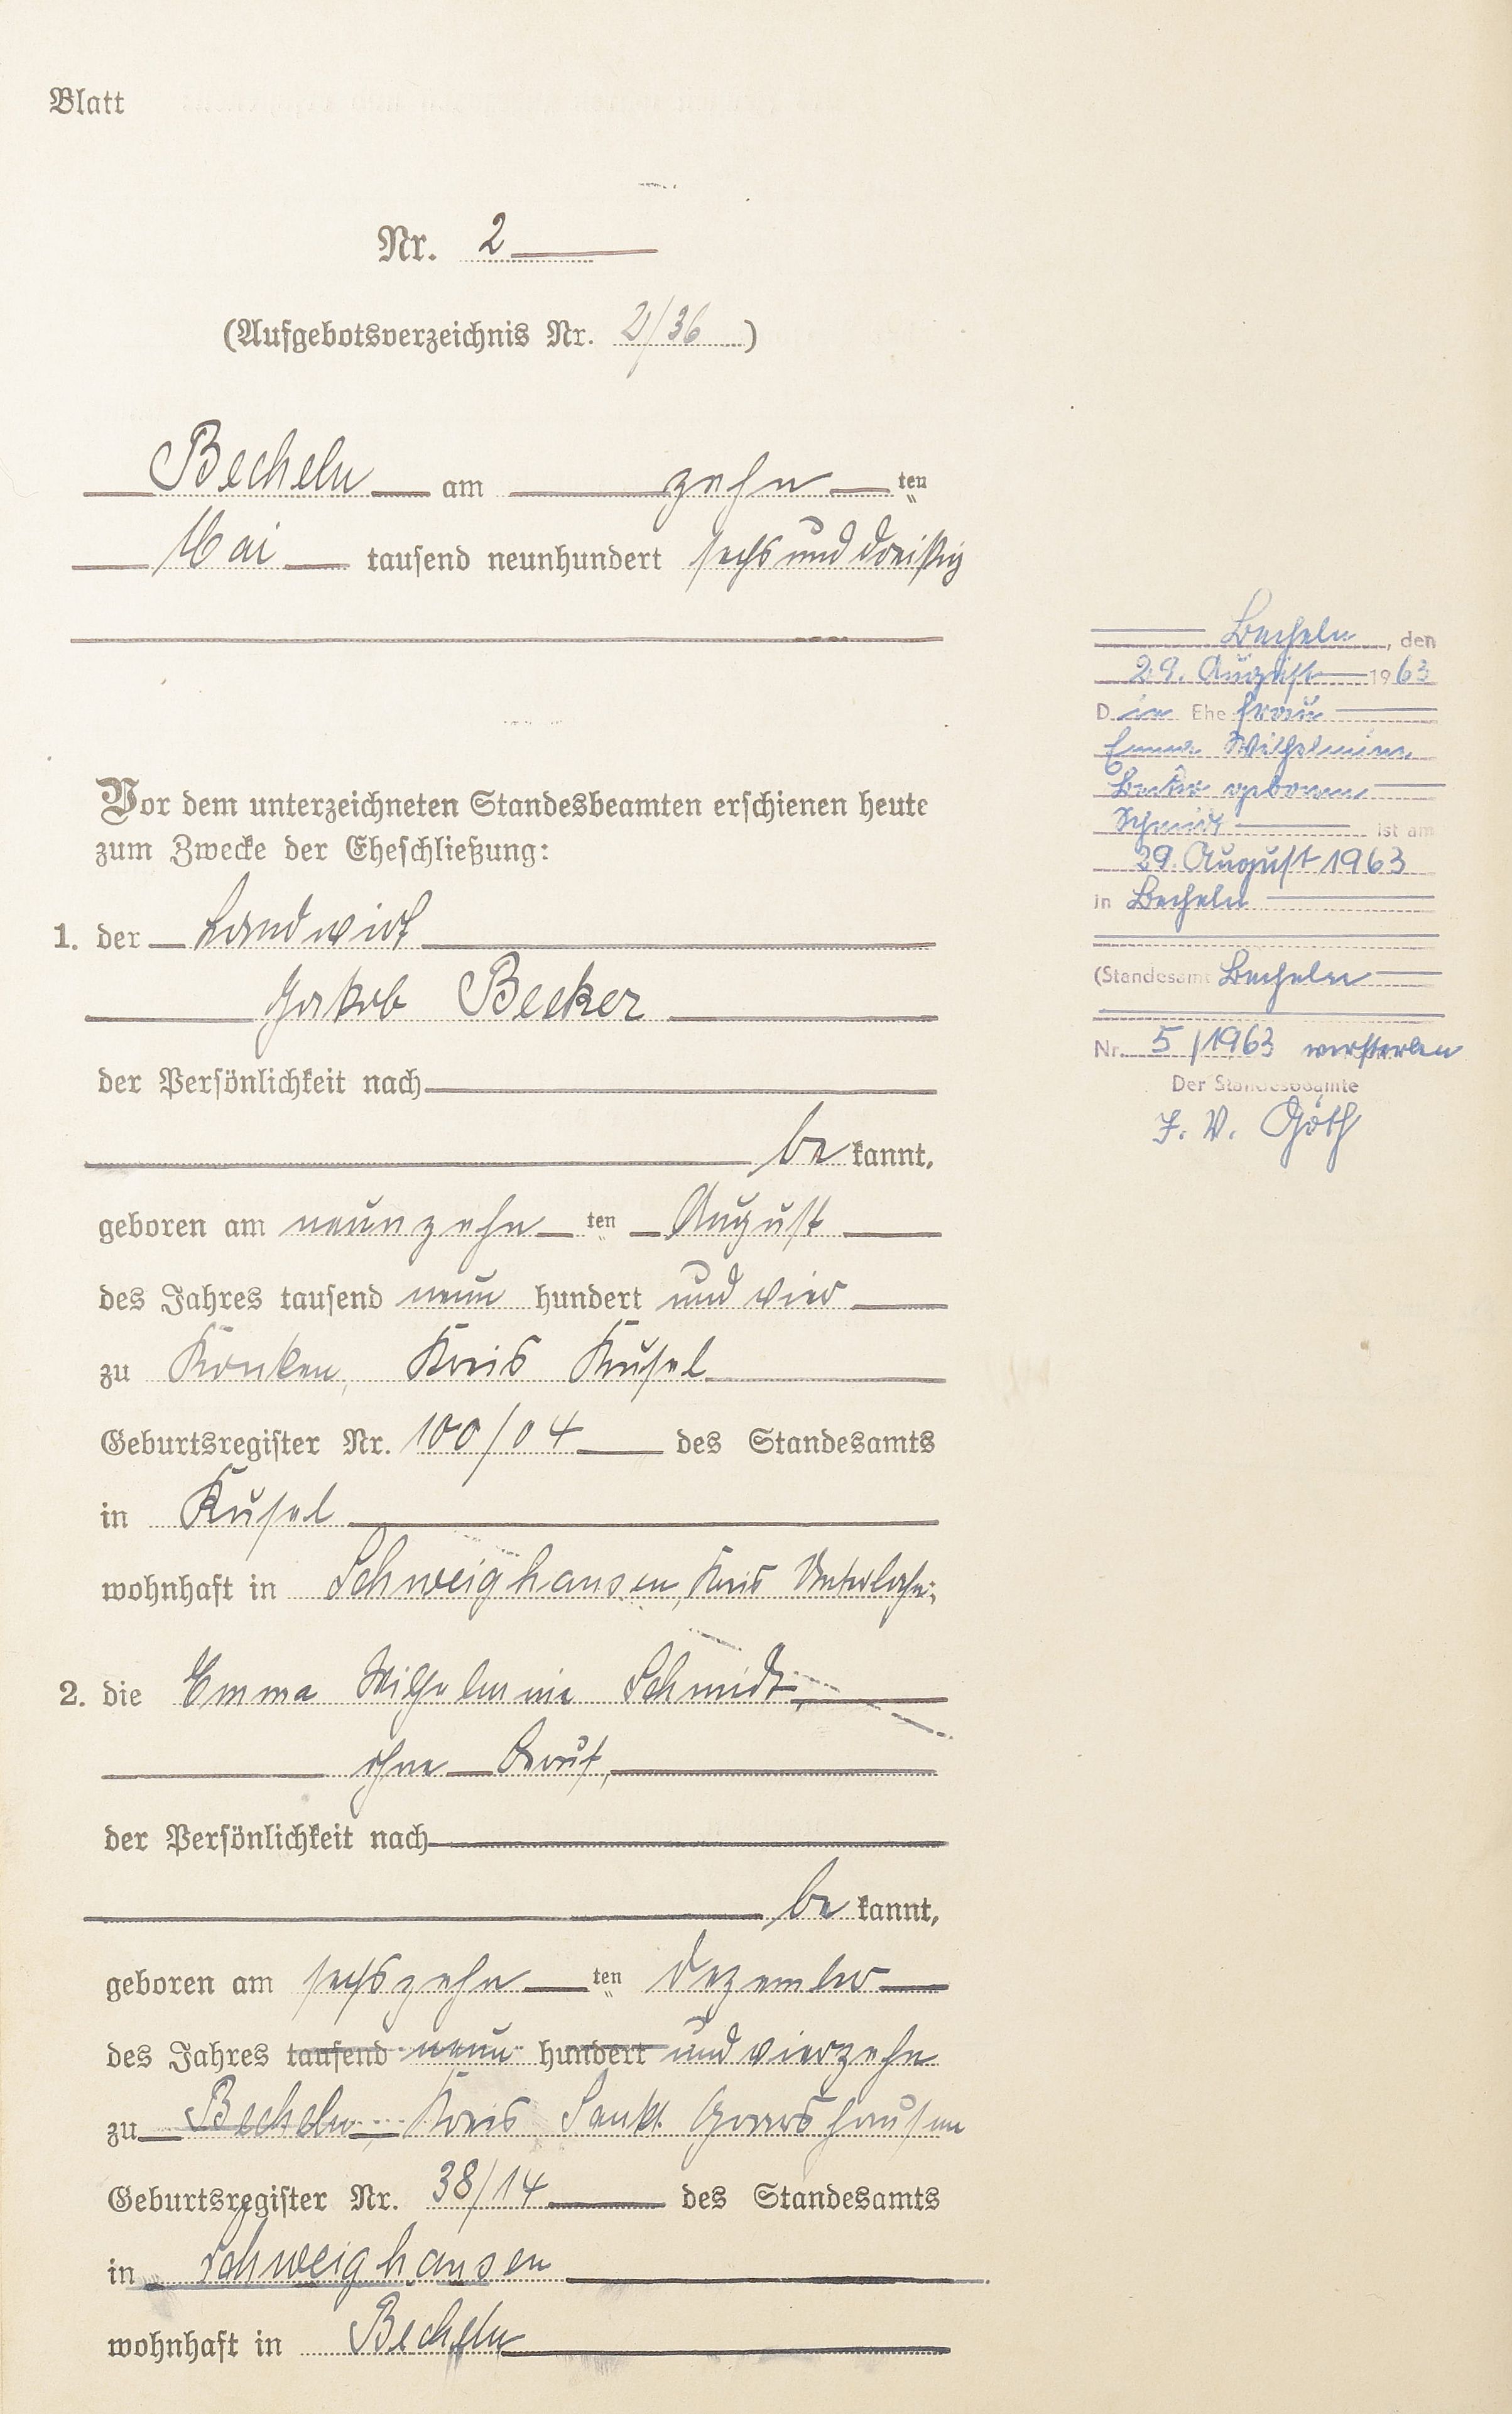 Blatt
Nr. 2
(Aufgebotsverzeichnis Nr. 2/36)
Becheln am zehn ten
Mai tausend neunhundert sechs und dreißig
Vor dem unterzeichneten Standesbeamten erschienen heute
zum Zwecke der Eheschließung:
1. der Landwirt
Jakob Becker
der Persönlichkeit nach
be kannt,
geboren am neunzehn ten August
des Jahres tausend neun hundert und vier
zu Konken, Kreis Kusel
Geburtsregister Nr. 100/04 des Standesamts
in Kusel
wohnhaft in Schweighausen, Kreis Unterlahn;
2. die Emma Wilhelmine Schmidt,
ohne Beruf,
der Persönlichkeit nach
be kannt,
geboren am sechszehn ten Dezember
des Jahres tausend neun hundert und vierzehn
zu Becheln, Kreis Sankt Goarshausen
Geburtsregister Nr. 38/14 des Standesamts
in Schweighausen
wohnhaft in Becheln
Becheln, den
29. August 1963
Die Ehefrau
Emma Wilhelmine
Becker geborene
Schmidt ist am
29. August 1963
in Becheln
(Standesamt Becheln
Nr. 5/1963 verstorben
Der Standesbeamte
I. V. Göth